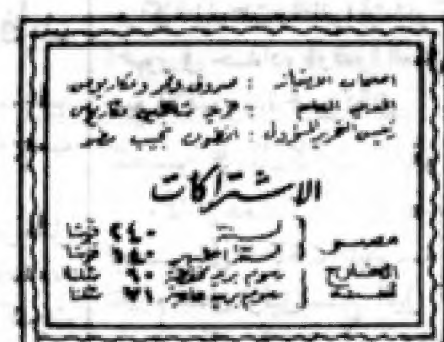 اصحاب الامتياز : صروف ونمر ومكاريوس
المدير العام : مكاريوس
رئيس التحرير المسؤول : انطون نجيب مطر
الاشتراكات
مصر لسنة ٢٤٠ قرشا
لستة اشهر ١٤٠ قرشا
الخارج رسوم بريد ٩٠ شلنا
لسنة رسوم بريد ٧١ شلنا